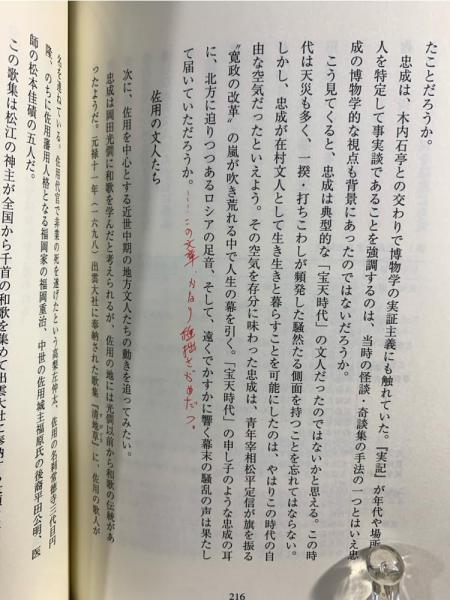 たことだろうか。
忠成は、木内石亭との交わりで博物学の実証主義にも触れていた。『実記』が年代や場所、
人を特定して事実談であることを強調するのは、当時の怪談・奇談集の手法の一つとはいえ忠
成の博物学的な視点も背景にあったのではないだろうか。
こう見てくると、忠成は典型的な「宝天時代」の文人だったのではないかと思える。この時
代は天災も多く、一揆・打ちこわしが頻発した騒然たる側面を持つことを忘れてはならない。
しかし、忠成が在村文人として生き生きと暮らすことを可能にしたのは、やはりこの時代の自
由な空気だったといえよう。その空気を存分に味わった忠成は、青年宰相松平定信が旗を振る
“寛政の改革”の嵐が吹き荒れる中で人生の幕を引く。「宝天時代」の申し子のような忠成の耳
に、北方に迫りつつあるロシアの足音、そして、遠くでかすかに響く幕末の騒乱の声は果たし
て届いていただろうか。
……この文章、かなり稚拙さがめだつ。
佐用の文人たち
次に、佐用を中心とする近世中期の地方文人たちの動きを追ってみたい。
忠成は岡田光僴に和歌を学んだと考えられるが、佐用の地には光僴以前から和歌の伝統があ
ったようだ。元禄十一年（一六九八）出雲大社に奉納された歌集『清地草』に、佐用の歌人が
名を連ねている。佐用代官で非業の死を遂げたという高梨左仲太、佐用の名刹常徳寺三代目円
隆、のちに佐用藩用人格となる福岡家の福岡重治、中世の佐用城主福原氏の後裔平田公明、医
師の松本佳磧の五人だ。
この歌集は松江の神主が全国から千首の和歌を集めて出雲大社に奉納
216